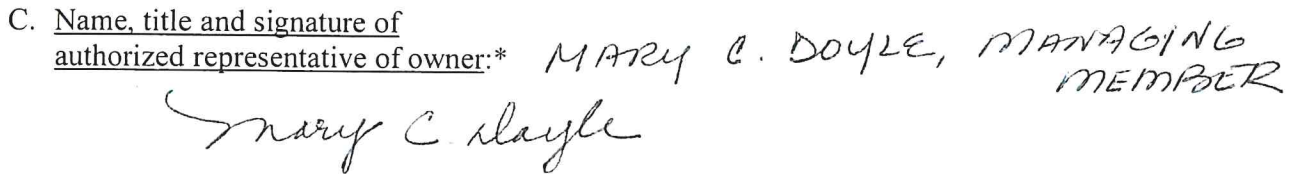 C. Name, title and signature of
authorized representative of owner:* MARY C. DOYLE, MANAGING
MEMBER
Mary C. Doyle